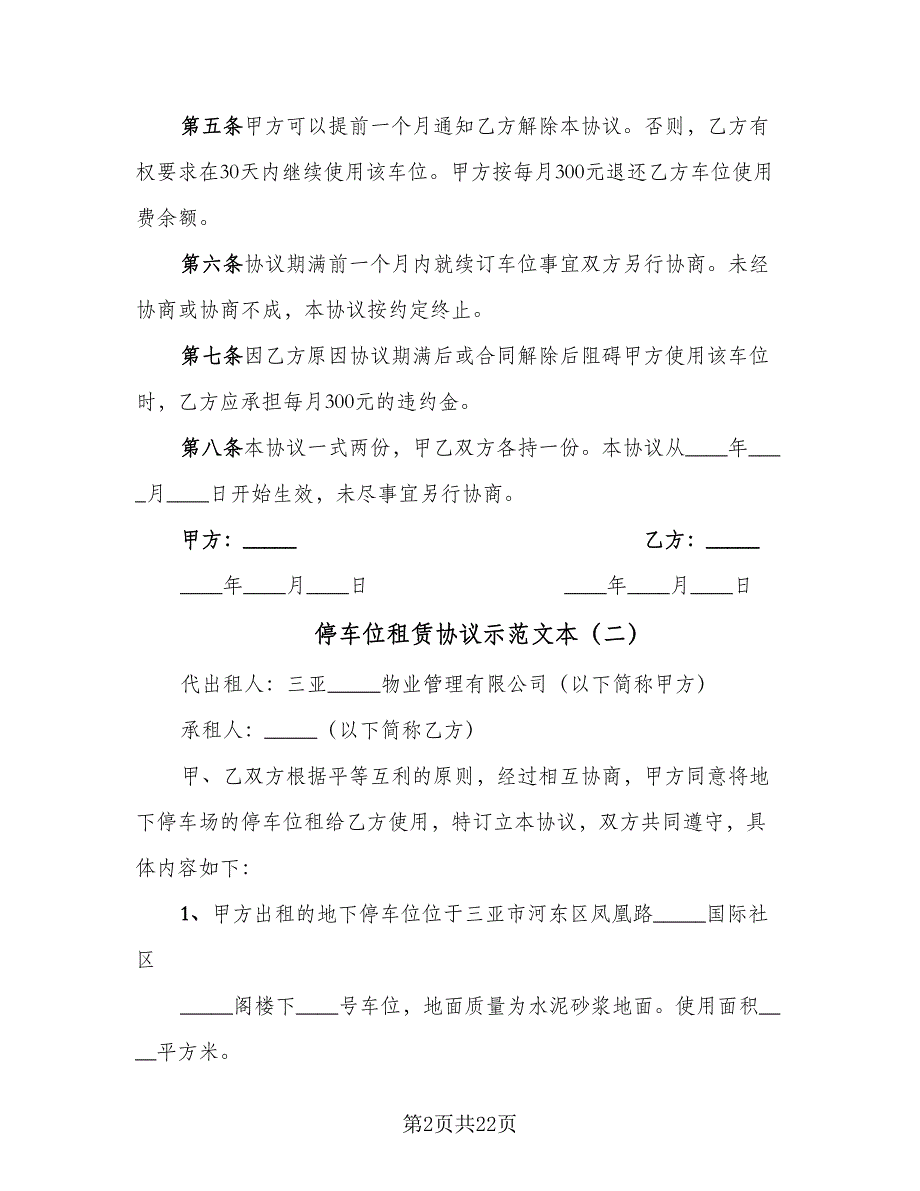 第五条甲方可以提前一个月通知乙方解除本协议。否则，乙方有
权要求在30天内继续使用该车位。甲方按每月300元退还乙方车位使用
费余额。
第六条协议期满前一个月内就续订车位事宜双方另行协商。未经
协商或协商不成，本协议按约定终止。
第七条因乙方原因协议期满后或合同解除后阻碍甲方使用该车位
时，乙方应承担每月300元的违约金。
第八条本协议一式两份，甲乙双方各持一份。本协议从____年___
_月____日开始生效，未尽事宜另行协商。
甲方：_____ 乙方：_____
____年____月____日 ____年____月____日
停车位租赁协议示范文本（二）
代出租人：三亚_____物业管理有限公司（以下简称甲方）
承租人：_____（以下简称乙方）
甲、乙双方根据平等互利的原则，经过相互协商，甲方同意将地
下停车场的停车位租给乙方使用，特订立本协议，双方共同遵守，具
体内容如下：
1、甲方出租的地下停车位位于三亚市河东区凤凰路_____国际社
区
_____阁楼下____号车位，地面质量为水泥砂浆地面。使用面积__
__平方米。
第2页共22页